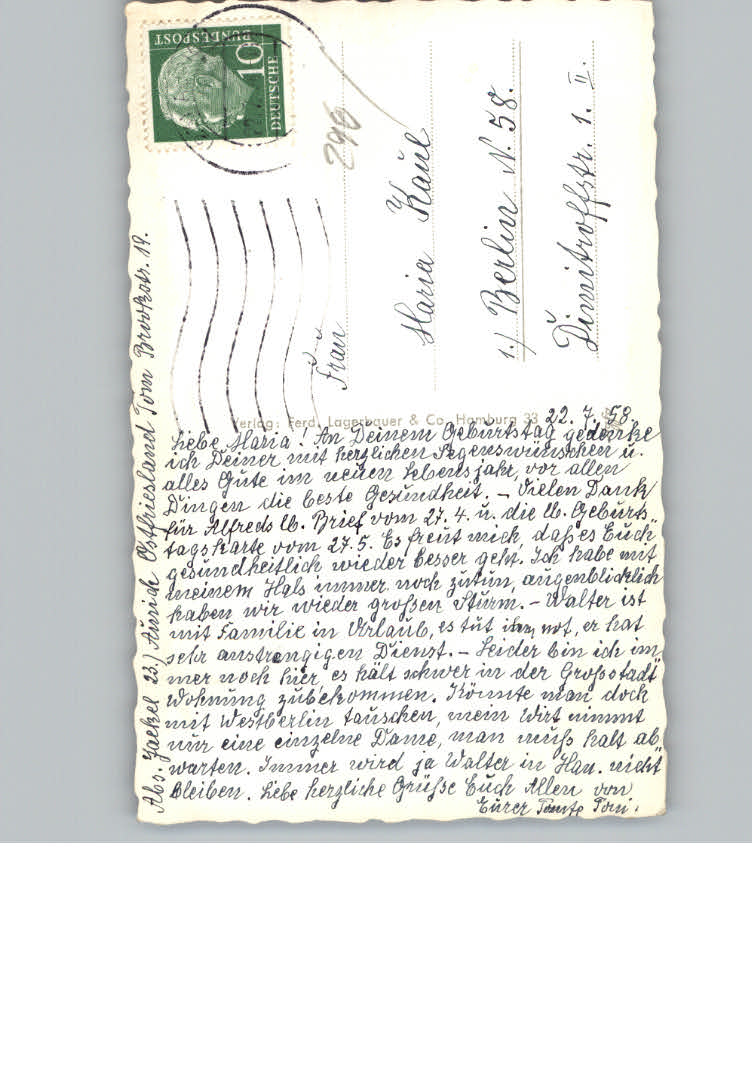 22. 7. 58.
Liebe Maria! An Deinem Geburtstag gedenke
ich Deiner mit herzlichen Segenswünschen u.
alles Gute im neuen Lebensjahr, vor allen
Dingen die beste Gesundheit. – Vielen Dank
für Alfreds lb. Brief vom 27. 4. u. die lb. Geburts
tagskarte vom 27. 5. Es freut mich, daß es Euch
gesundheitlich wieder besser geht. Ich habe mit
meinem Hals immer noch zutun, augenblicklich
haben wir wieder großen Sturm. – Walter ist
mit Familie in Urlaub, es tut ihm not, er hat
sehr anstrengigen Dienst. – Leider bin ich im
mer noch hier, es hält schwer in der Großstadt
Wohnung zubekommen. Könnte man doch
mit Westberlin tauschen, mein Wirt nimmt
nur eine einzelne Dame, man muß halt ab
warten. Immer wird ja Walter in Han. nicht
bleiben. Liebe herzliche Grüße Euch Allen von
Eurer Tante Toni.
Abs. Jaekel 23.) Aurich Ostfriesland Tom Brookstr. 19.
Verlag: Ferd. Lagerbauer & Co. Hamburg 33
DEUTSCHE
BUNDESPOST
10
296
Frau
Maria Kaul
1.) Berlin N. 58.
Dimitroffstr. 1. II.